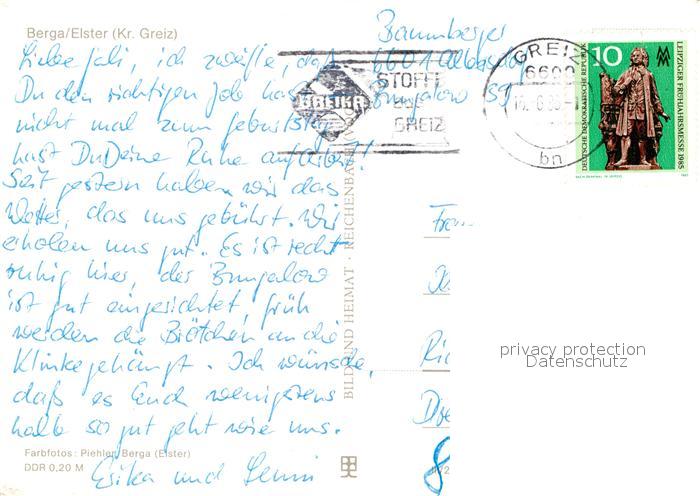 Berga/Elster (Kr. Greiz)
Baumberger
6601 Albersdorf
Bungalow 59
Liebe Juli ich zweifle, daß
Du den richtigen Job hast
nicht mal zum Geburtstag
hast Du Deine Ruhe auf Arbeit!
Seit gestern haben wir das
Wetter, das uns gebührt. Wir
erholen uns gut. Es ist recht
ruhig hier, der Bungalow
ist gut eingerichtet, früh
werden die Brötchen an die
Klinke gehängt. Ich wünsche,
daß es Euch wenigstens
halb so gut geht wie uns.
Erika und
STOFFE
AUS
GREIZ
GREIKA
GREIZ
6600
bn
10
MM
DEUTSCHE DEMOKRATISCHE REPUBLIK
LEIPZIGER FRÜHJAHRSMESSE 1985
BILD UND HEIMAT · REICHENBACH
Fra
Dre
8
privacy protection
Datenschutz
Farbfotos: Piehler, Berga (Elster)
DDR 0,20 M